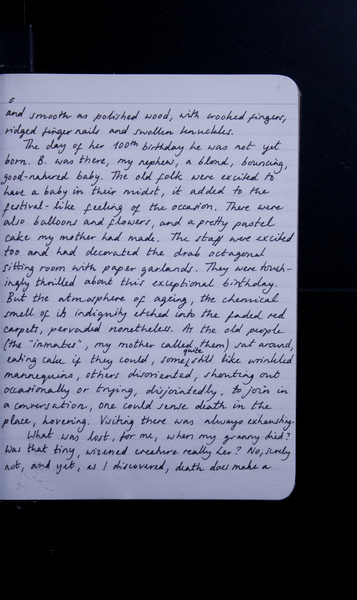 and smooth as polished wood, with crooked fingers,
ridged finger nails and swollen knuckles.
The day of her 100th birthday he was not yet
born. B. was there, my nephew, a blond, bouncing,
good-natured baby. The old folk were excited to
have a baby in their midst, it added to the
festival-like feeling of the occasion. There were
also balloons and flowers, and a pretty pastel
cake my mother had made. The staff were excited
too and had decorated the drab octagonal
sitting room with paper garlands. They were touch-
ingly thrilled about this exceptional birthday.
But the atmosphere of ageing, the chemical
smell of its indignity etched into the faded red
carpets, pervaded nonetheless. As the old people
(the "inmates", my mother called them) sat around,
eating cake if they could, some quite still like wrinkled
mannequins, others disoriented, shouting out
occasionally or trying, disjointedly, to join in
a conversation, one could sense death in the
place, hovering. Visiting there was always exhausting.
What was lost, for me, when my granny died?
Was that tiny, wizened creature really her? No, surely
not, and yet, as I discovered, death does make a